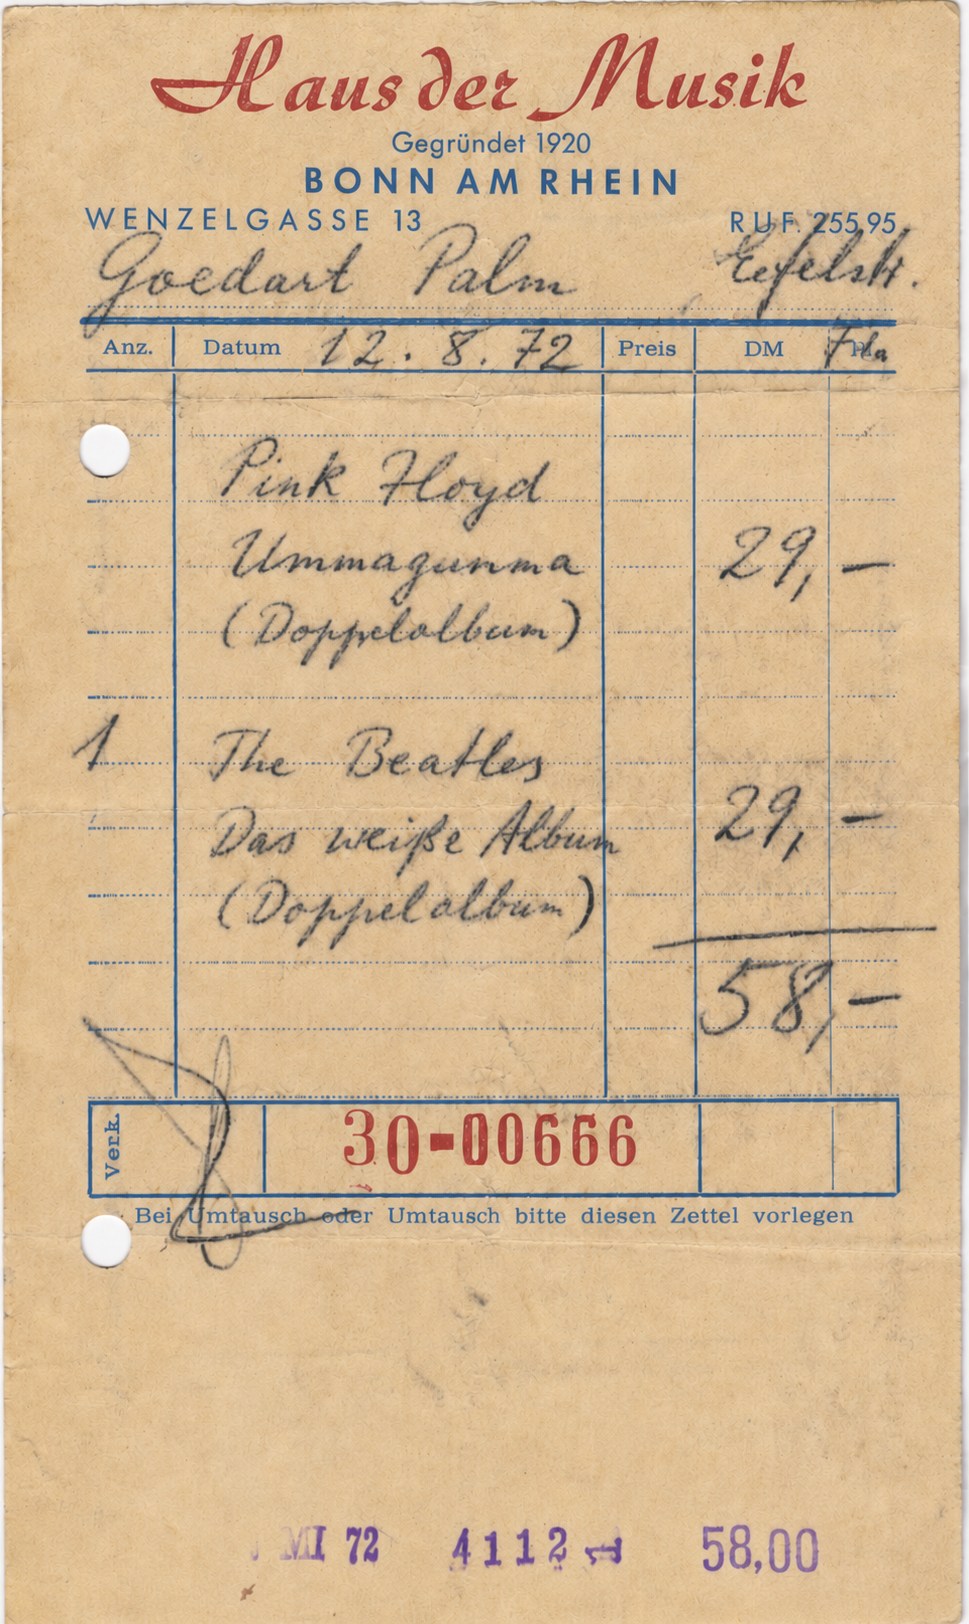 Haus der Musik
Gegründet 1920
BONN AM RHEIN
WENZELGASSE 13 RUF 255 95
Goedart Palm Eifelstr.
Anz. Datum 12.8.72 Preis DM
Pink Floyd
Ummagumma 29,—
(Doppelalbum)
1 The Beatles
Das weiße Album 29,—
(Doppelalbum)
58,—
Verk. 30-00666
Bei Umtausch oder Umtausch bitte diesen Zettel vorlegen
MI 72 4112 58,00